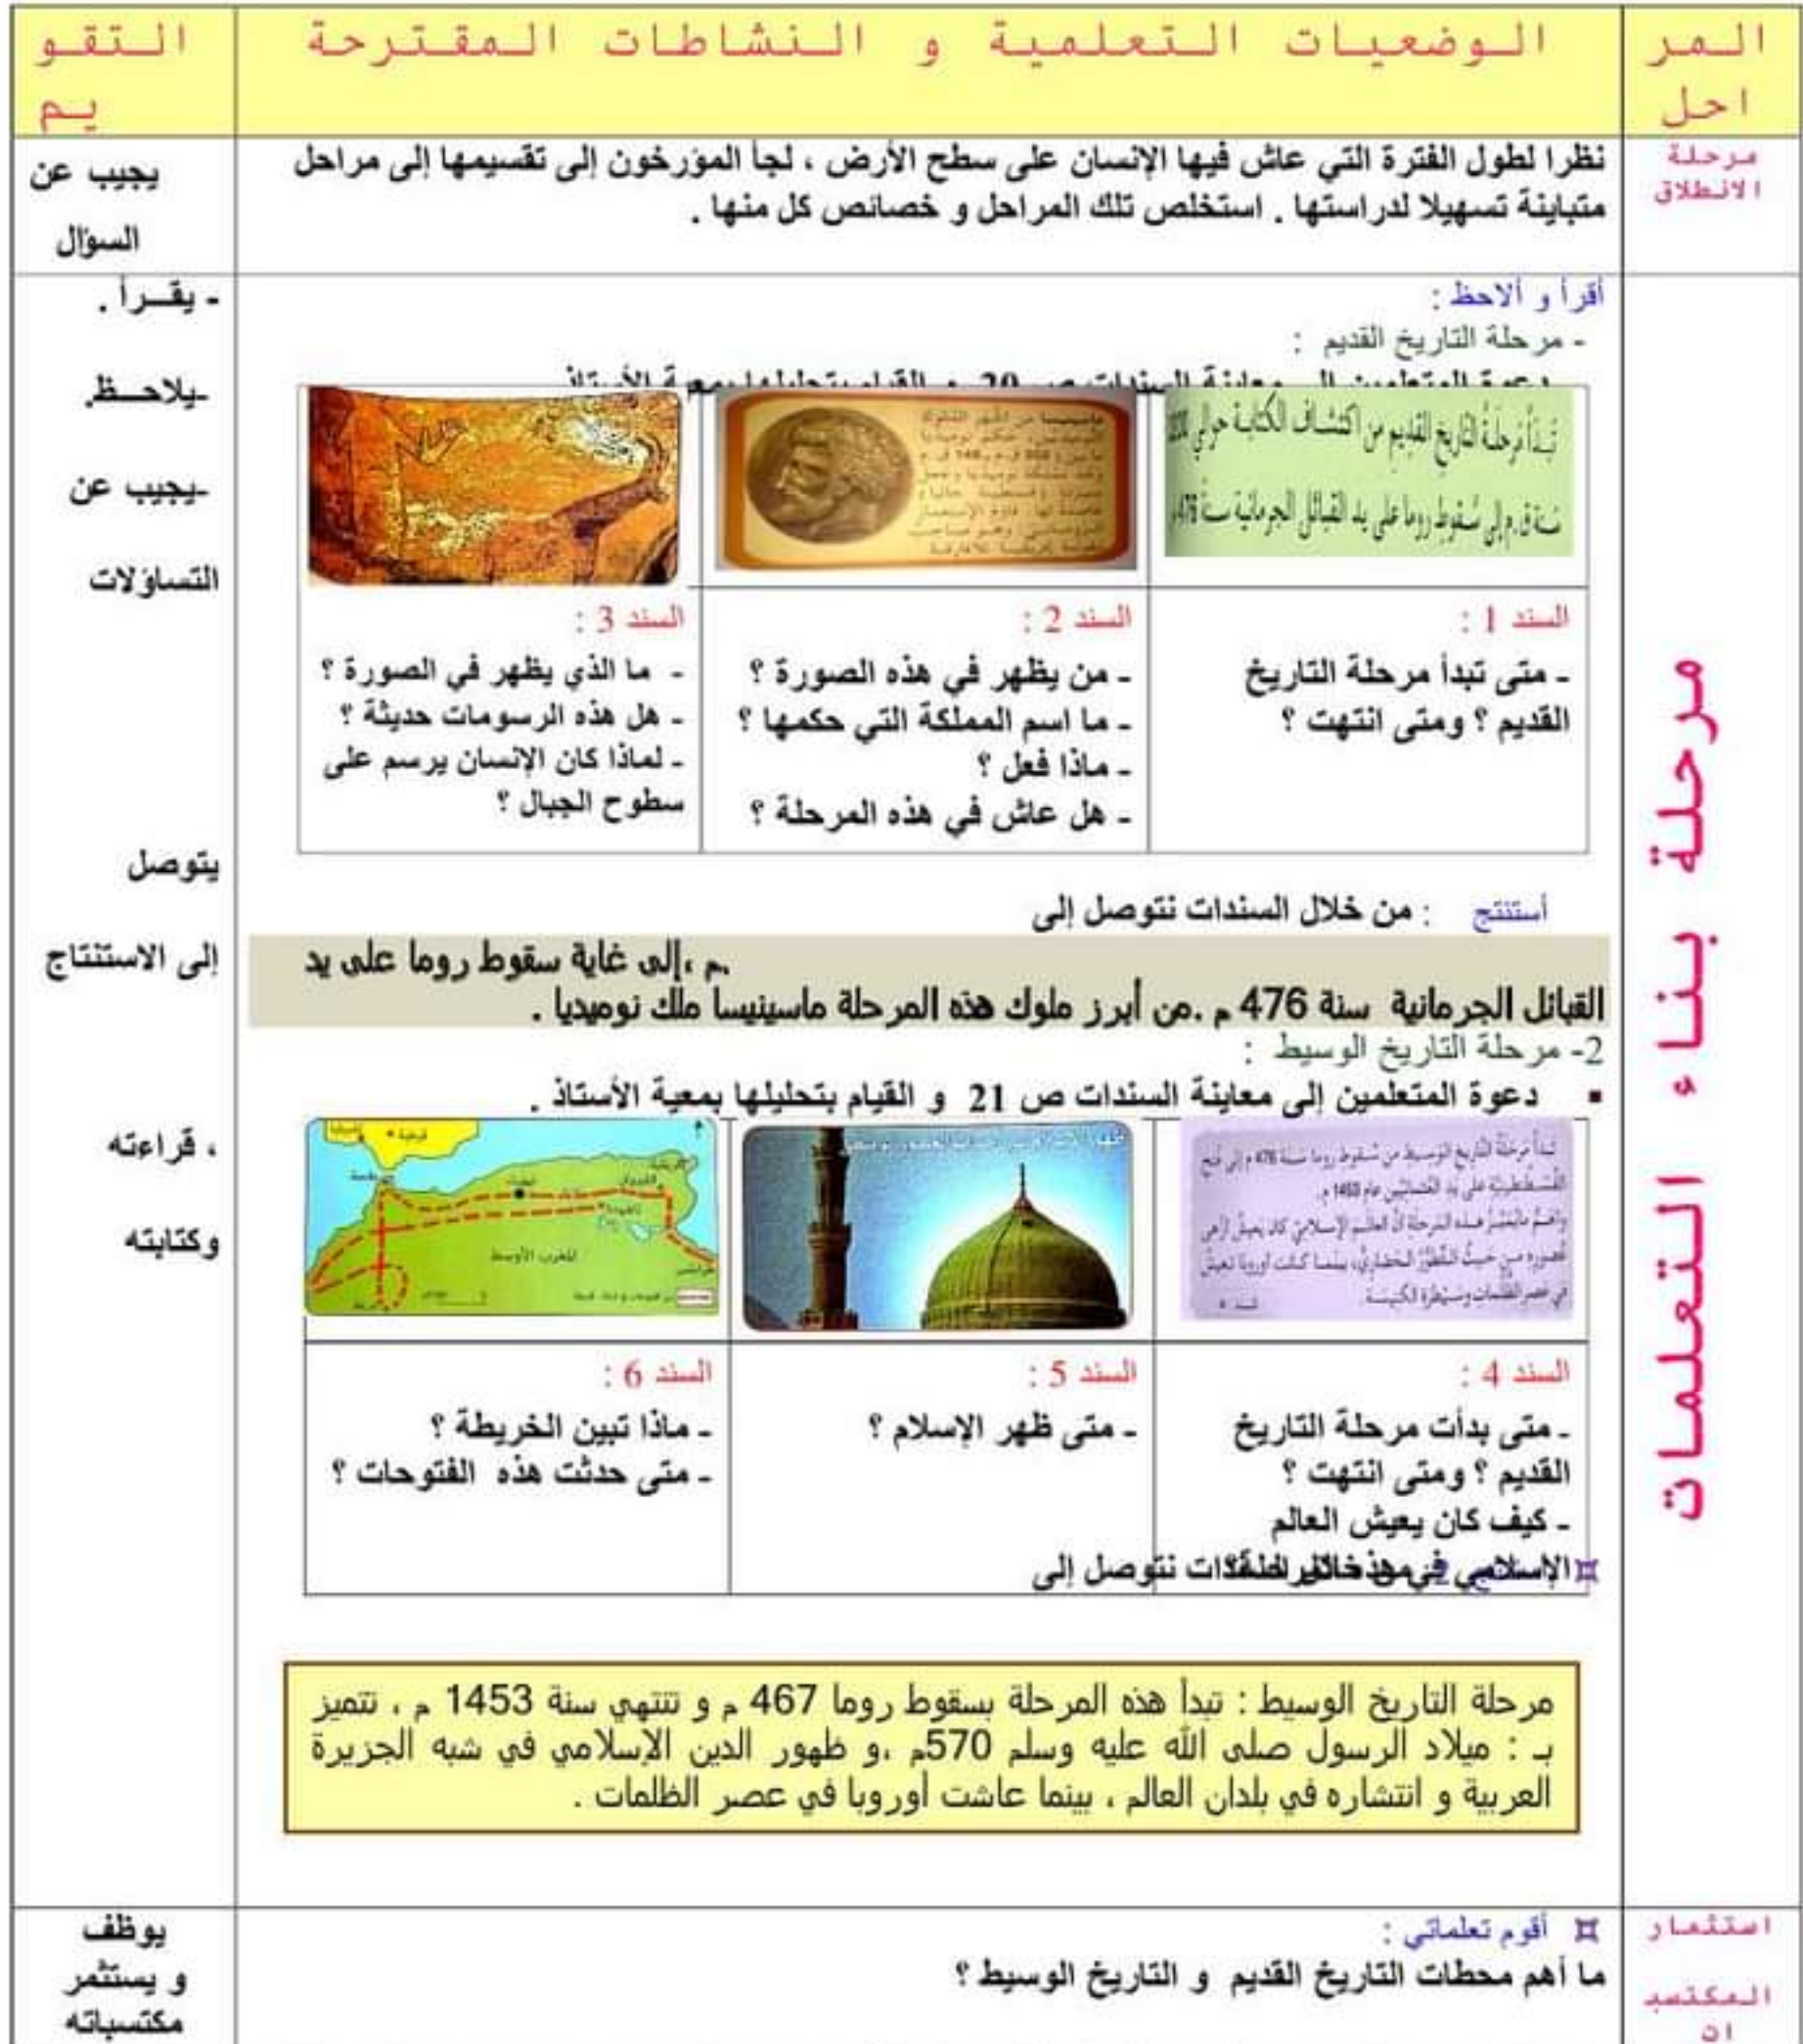 المراحل
الوضعيات التعلمية و النشاطات المقترحة
التقويم
مرحلة
الانطلاق
نظرا لطول الفترة التي عاش فيها الإنسان على سطح الأرض ، لجأ المؤرخون إلى تقسيمها إلى مراحل
متباينة تسهيلا لدراستها . استخلص تلك المراحل و خصائص كل منها .
يجيب عن
السؤال
مرحلة بناء التعلمات
أقرأ و ألاحظ :
- مرحلة التاريخ القديم :
دعوة المتعلمين إلى معاينة السندات ص 20 و القيام بتحليلها بمعية الأستاذ
تبدأ مرحلة التاريخ القديم من اكتشاف الكتابة حوالي
سنة ق.م إلى سقوط روما على يد القبائل الجرمانية سنة 476م
السند 1 :
- متى تبدأ مرحلة التاريخ
القديم ؟ ومتى انتهت ؟
السند 2 :
- من يظهر في هذه الصورة ؟
- ما اسم المملكة التي حكمها ؟
- ماذا فعل ؟
- هل عاش في هذه المرحلة ؟
السند 3 :
- ما الذي يظهر في الصورة ؟
- هل هذه الرسومات حديثة ؟
- لماذا كان الإنسان يرسم على
سطوح الجبال ؟
أستنتج : من خلال السندات نتوصل إلى
م.، إلى غاية سقوط روما على يد
القبائل الجرمانية سنة 476 م .من أبرز ملوك هذه المرحلة ماسينيسا ملك نوميديا .
2- مرحلة التاريخ الوسيط :
▪ دعوة المتعلمين إلى معاينة السندات ص 21 و القيام بتحليلها بمعية الأستاذ .
تبدأ مرحلة التاريخ الوسيط من سقوط روما سنة 476 م إلى فتح
القسطنطينية على يد العثمانيين عام 1453 م.
وأهم ما يميز هذه المرحلة أن العالم الإسلامي كان يعيش أزهى
عصوره من حيث التطور الحضاري، بينما كانت أوروبا تعيش
في عصر الظلمات وسيطرة الكنيسة.
المغرب الأوسط
القيروان
السند 4 :
- متى بدأت مرحلة التاريخ
القديم ؟ ومتى انتهت ؟
- كيف كان يعيش العالم
الإسلامي في هذه المرحلة؟
السند 5 :
- متى ظهر الإسلام ؟
السند 6 :
- ماذا تبين الخريطة ؟
- متى حدثت هذه الفتوحات ؟
من خلال السندات نتوصل إلى
مرحلة التاريخ الوسيط : تبدأ هذه المرحلة بسقوط روما 467 م و تنتهي سنة 1453 م ، تتميز
بـ : ميلاد الرسول صلى الله عليه وسلم 570م ،و ظهور الدين الإسلامي في شبه الجزيرة
العربية و انتشاره في بلدان العالم ، بينما عاشت أوروبا في عصر الظلمات .
- يقـرأ .
-يلاحـظ.
-يجيب عن
التساؤلات
يتوصل
إلى الاستنتاج
، قراءته
وكتابته
استثمار
المكتسبات
أقوم تعلماتي :
ما أهم محطات التاريخ القديم و التاريخ الوسيط ؟
يوظف
و يستثمر
مكتسباته